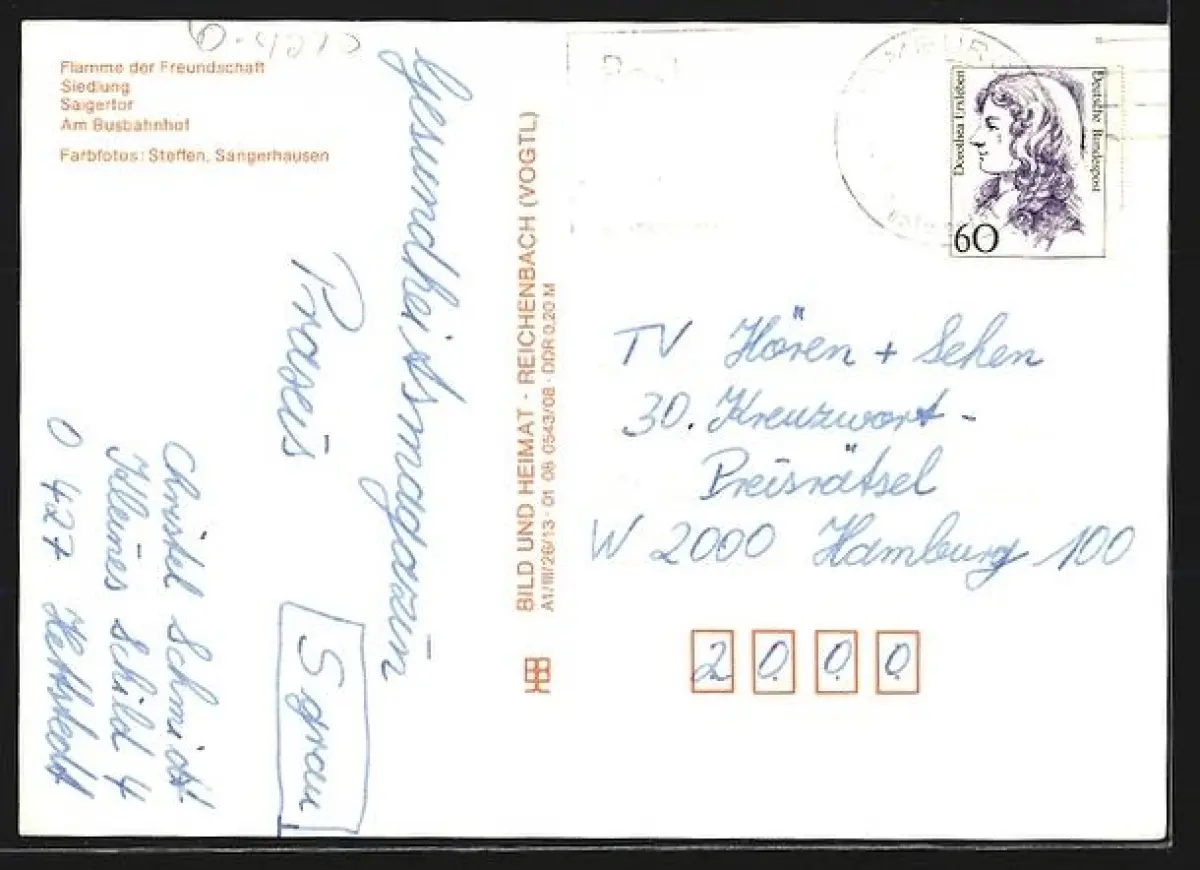 D-4270
Flamme der Freundschaft
Siedlung
Saigertor
Am Busbahnhof
Farbfotos: Steffen, Sangerhausen
Gesundheitsmagazin
Praxis
S grau
Christel Schmidt
Kleines Schild 4
O 427 Hettstedt
BILD UND HEIMAT · REICHENBACH (VOGTL)
A1/III/26/13 · 01 08 0543/08 · DDR 0,20 M
Dorothea Erxleben
Deutsche Bundespost
60
TV Hören + Sehen
30. Kreuzwort-
Preisrätsel
W 2000 Hamburg 100
2 0 0 0